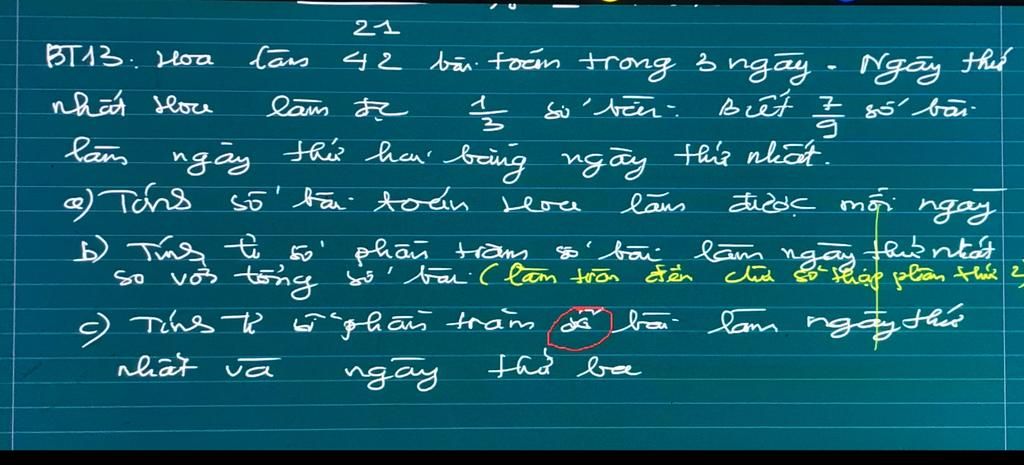 21
BT13. Hoa làm 42 bài toán trong 3 ngày. Ngày thứ
nhất Hoa làm đc 1/3 số bài. Biết 7/9 số bài
làm ngày thứ hai bằng ngày thứ nhất.
a) Tính số bài toán Hoa làm được mỗi ngày
b) Tính tỉ số phần trăm số bài làm ngày thứ nhất
so với tổng số bài (làm tròn đến chữ số thập phân thứ 2)
c) Tính tỉ số phần trăm số bài làm ngày thứ
nhất và ngày thứ ba